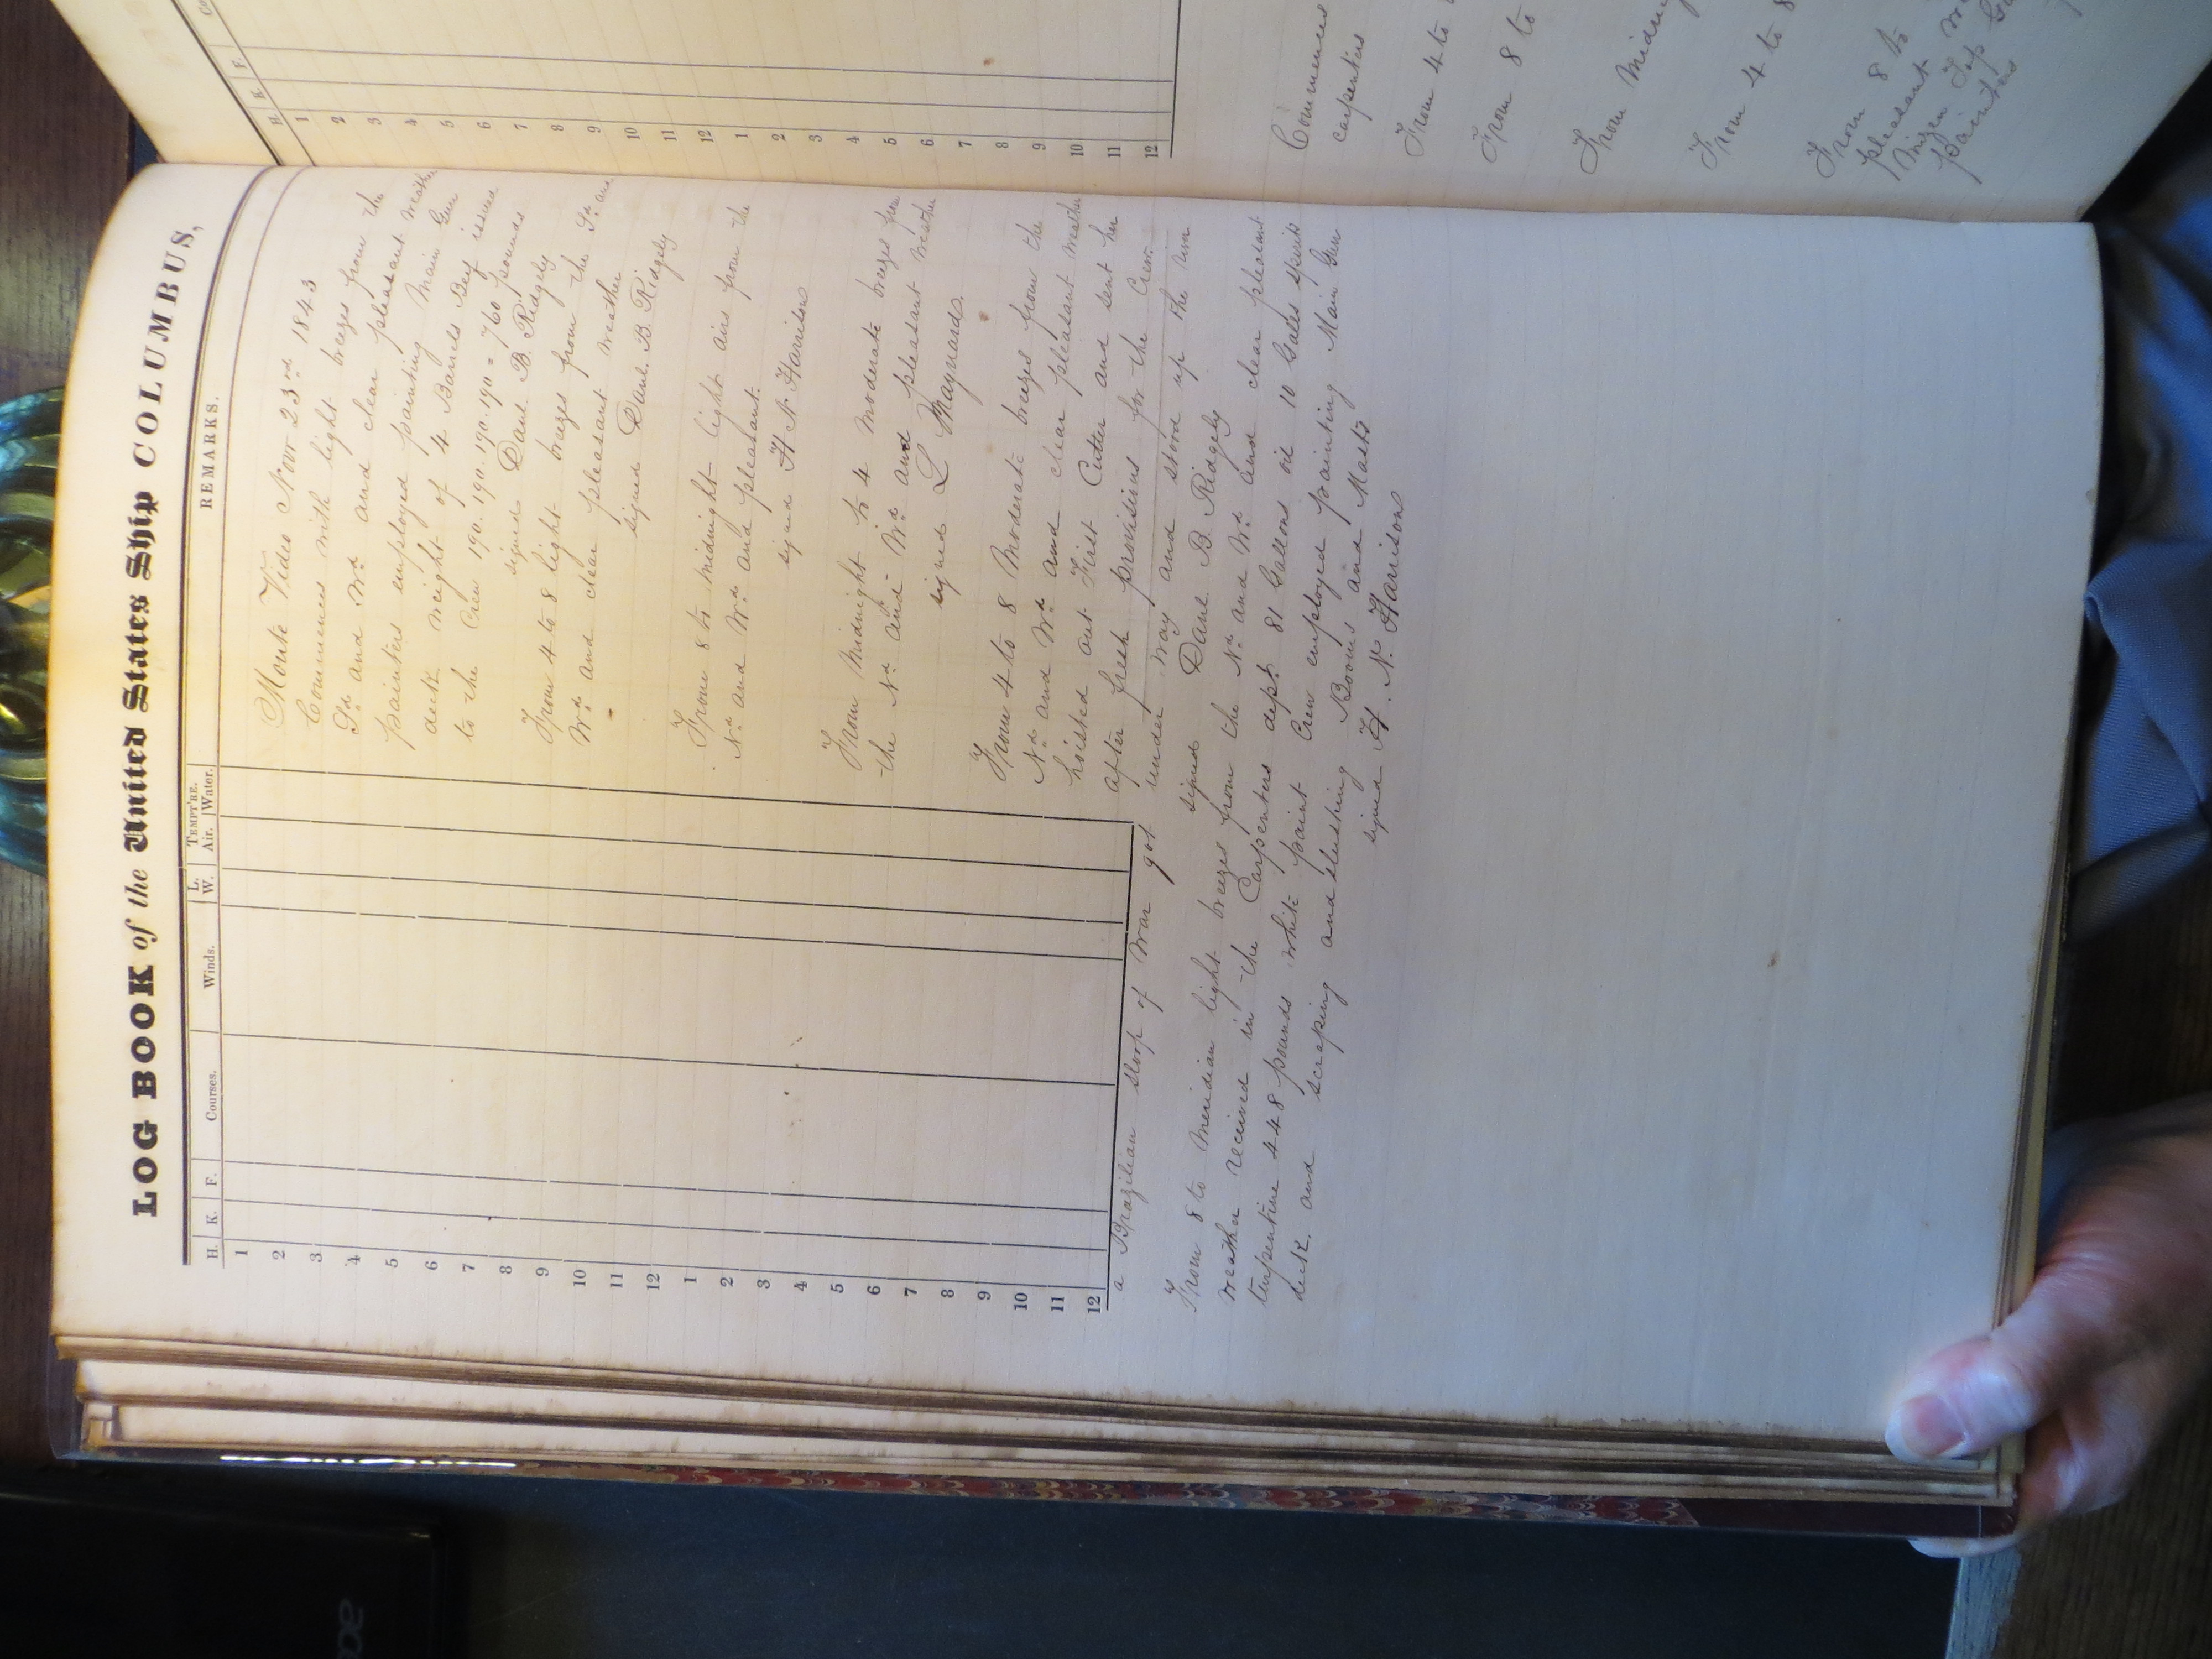 LOG BOOK of the United States Ship COLUMBUS,
H. K. F. Courses. Winds. L. W. TEMPT'RE. Air. Water. REMARKS.
1
2
3
4
5
6
7
8
9
10
11
12
1
2
3
4
5
6
7
8
9
10
11
12
Monte Video Novr 23rd 1843
Commences with light breezes from the
Sd and Wd and clear pleasant weather
painters employed painting Main Gun
deck weight of 4 Barrels Beef issued
to the Crew 190. 190. 190. 190 = 760 pounds
signed Danl. B. Ridgely
From 4 to 8 light breezes from the Sd and
Wd and clear pleasant weather
signed Danl. B. Ridgely
From 8 to midnight light airs from the
Nd and Wd and pleasant.
signed H. N. Harrison
From Midnight to 4 moderate breezes from
the Nd and Wd and pleasant weather
signed L Maynard.
From 4 to 8 Moderate breezes from the
Nd and Wd and clear pleasant weather
hoisted out First Cutter and sent her
after fresh provisions for the Crew.
a Brazilian sloop of War got under way and stood up the river
signed Danl. B. Ridgely
From 8 to Meridian light breezes from the Nd and Wd and clear pleasant
weather received in the Carpenters dept. 81 Gallons oil 10 Galls spirits
turpentine 448 pounds white paint Crew employed painting Main Gun
deck. and scraping and slushing Booms and Masts
signed H. N. Harrison
Co
H. K. F.
1
2
3
4
5
6
7
8
9
10
11
12
1
2
3
4
5
6
7
8
9
10
11
12
Commences
carpenters
From 4 to
From 8 to
From Midnig
From 4 to 8
From 8 to
pleasant
Mizen Top
painters